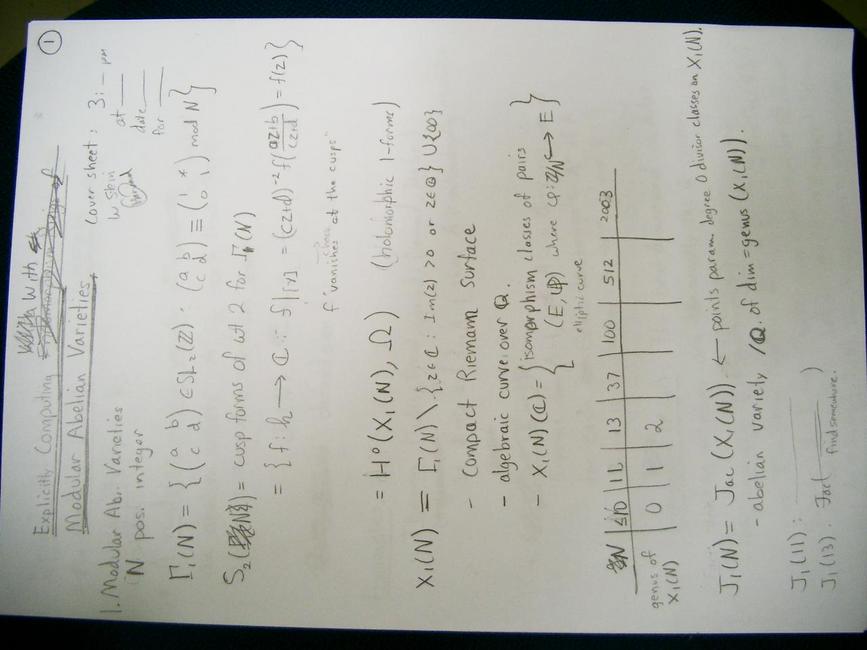 ①
Explicitly Computing With
Modular Abelian Varieties
cover sheet: 3:— pm
W. Stein at ___
date ___
for ___
1. Modular Ab. Varieties
N pos. integer
Γ₁(N) = { (a b / c d) ∈ SL₂(ℤ) : (a b / c d) ≡ (1 * / 0 1) mod N }
S₂( ) = cusp forms of wt 2 for Γ₁(N)
= { f: h → ℂ : f|[γ] = (cz+d)⁻² f((az+b)/(cz+d)) = f(z) }
f "vanishes at the cusps"
= H⁰(X₁(N), Ω) (holomorphic 1-forms)
X₁(N) = Γ₁(N) \ { z ∈ ℂ : Im(z) > 0 or z ∈ ℚ } ∪ {∞}
- Compact Riemann Surface
- algebraic curve over ℚ.
- X₁(N)(ℂ) = { isomorphism classes of pairs
(E, φ) where φ: ℤ/N ↪ E }
elliptic curve
N | ≤10 | 11 | 13 | 37 | 100 | 512 | 2003
genus of X₁(N) | 0 | 1 | 2
J₁(N) = Jac(X₁(N)). ← points param. degree 0 divisor classes on X₁(N).
- abelian variety /ℚ. of dim = genus(X₁(N)).
J₁(11): ___
J₁(13). Jac( ___ )
find somewhere.